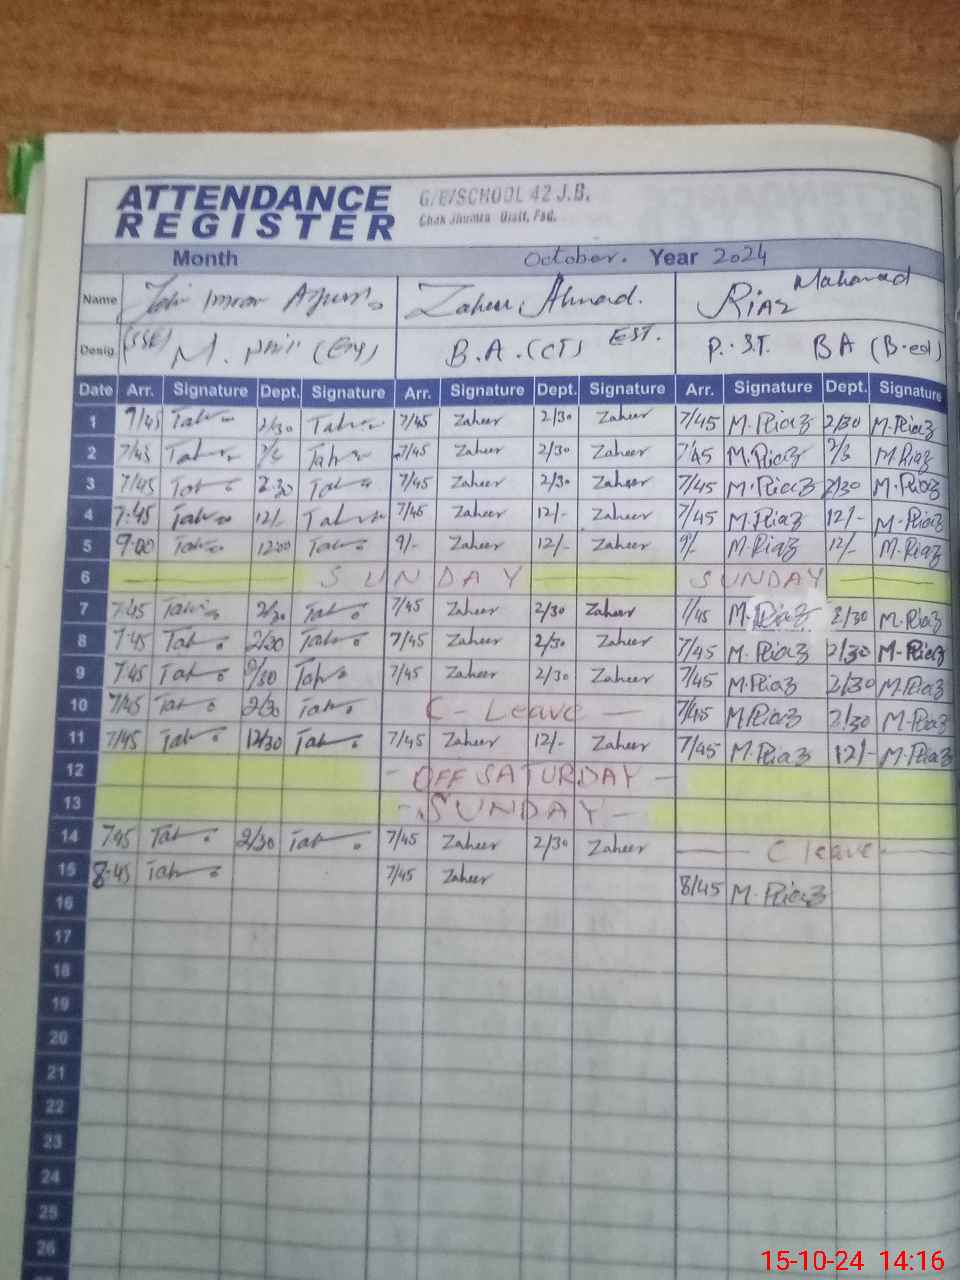 ATTENDANCE
REGISTER
G/E/SCHOOL 42 J.B.
Chak Jhumra Distt, Fsd.
Month October. Year 2024
Name Imran Zaheer Ahmad. Mahamad Riaz
Desig (SSE) M. phil (Eng) B.A.(CT) EST. P.S.T. BA (B-ed)
Date Arr. Signature Dept. Signature Arr. Signature Dept. Signature Arr. Signature Dept. Signature
1 7/45 Tahir 2/30 Tahir 7/45 Zaheer 2/30 Zaheer 7/45 M.Riaz 2/30 M.Riaz
2 7/45 Tahir Tahir 7/45 Zaheer 2/30 Zaheer 7/45 M.Riaz M.Riaz
3 7/45 Tahir 2:30 Tahir 7/45 Zaheer 2/30 Zaheer 7/45 M.Riaz 2/30 M.Riaz
4 7:45 Tahir 12/- Tahir 7/45 Zaheer 12/- Zaheer 7/45 M.Riaz 12/- M.Riaz
5 9:00 Tahir 12:00 Tahir 9/- Zaheer 12/- Zaheer 9/- M.Riaz 12/- M.Riaz
6 SUNDAY SUNDAY
7 7:45 Tahir 2/30 Tahir 7/45 Zaheer 2/30 Zaheer 7/45 M.Riaz 2/30 M.Riaz
8 7:45 Tahir 2/30 Tahir 7/45 Zaheer 2/30 Zaheer 7/45 M.Riaz 2/30 M.Riaz
9 7/45 Tahir 2/30 Tahir 7/45 Zaheer 2/30 Zaheer 7/45 M.Riaz 2/30 M.Riaz
10 7/45 Tahir 2/30 Tahir C-Leave 7/45 M.Riaz 2/30 M.Riaz
11 7/45 Tahir 12/30 Tahir 7/45 Zaheer 12/- Zaheer 7/45 M.Riaz 12/- M.Riaz
12 - OFF SATURDAY -
13 - SUNDAY -
14 7:45 Tahir 2/30 Tahir 7/45 Zaheer 2/30 Zaheer C leave
15 8:45 Tahir 7/45 Zaheer 8/45 M.Riaz
16
17
18
19
20
21
22
23
24
25
26
15-10-24 14:16